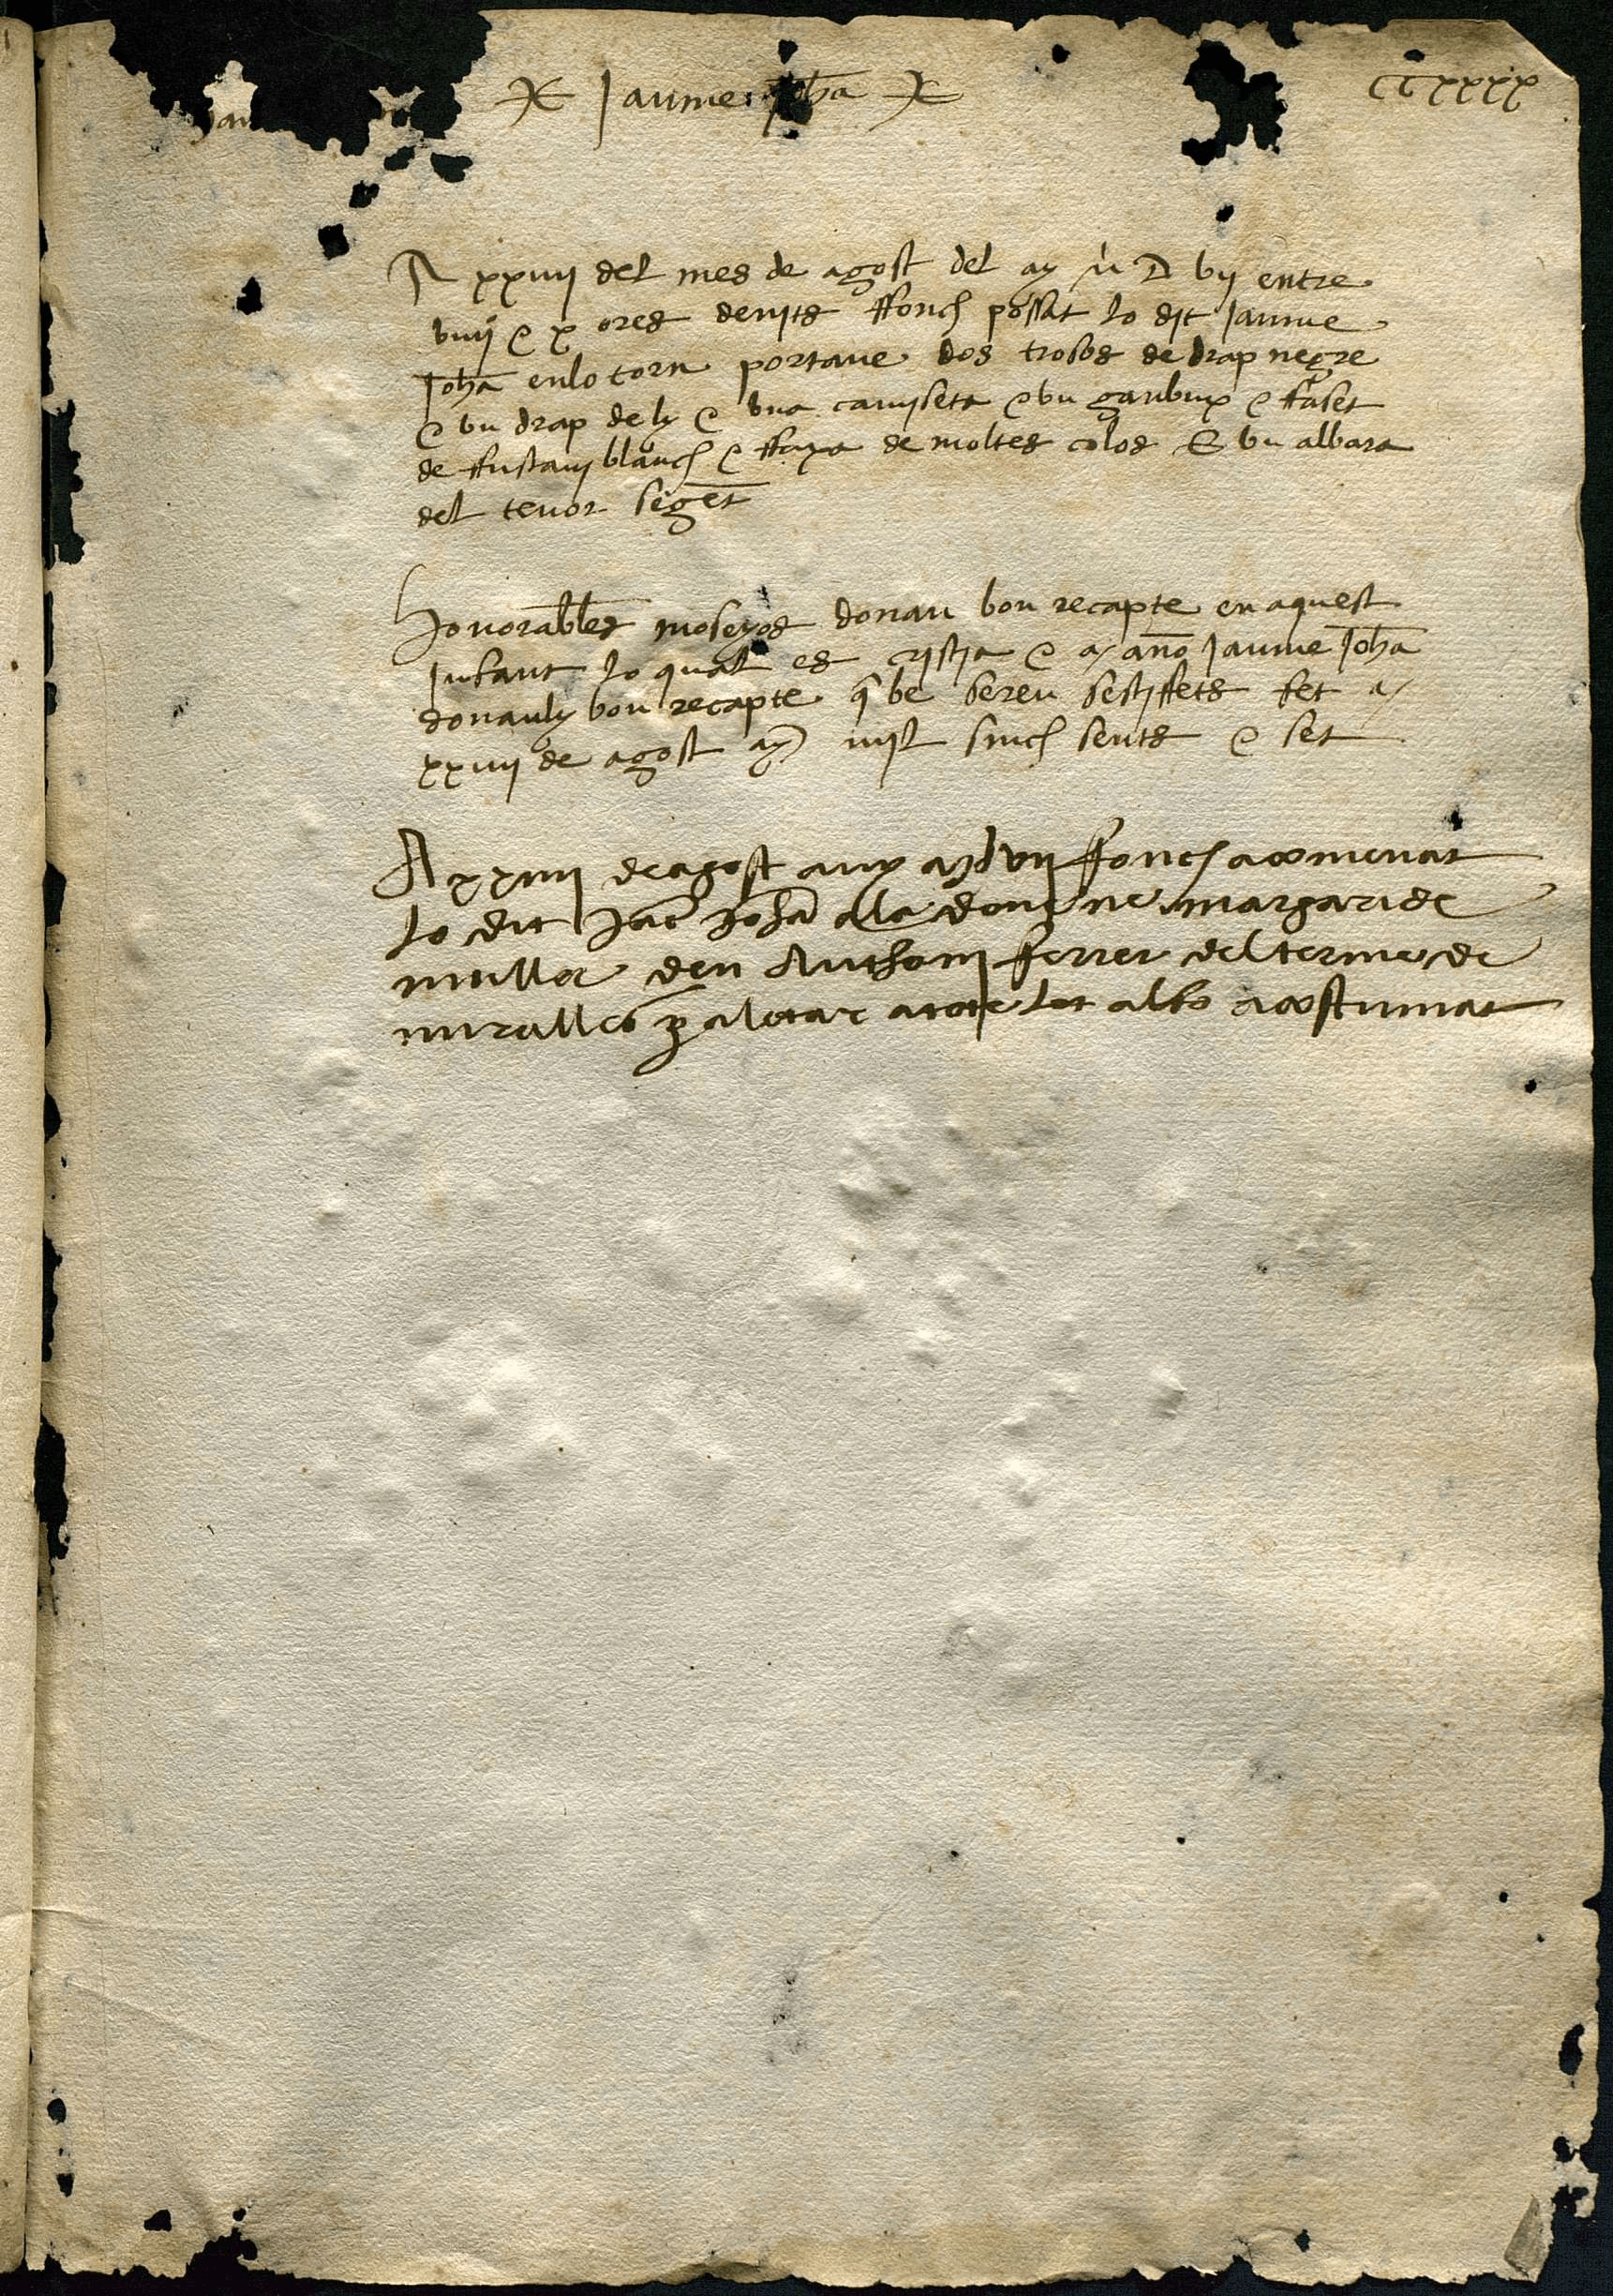 Jaume Joha
CCxxxx
A xxiiii del mes de agost del ay M D vii entre
viiii e x ores de nits ffonch possat lo dit Jaume
Joha en lo torn portave dos trosos de drap negre
e vn drap de ly e vna camiseta e vn ganbux e ffaset
de ffustani blanch e ffaxa de moltes colos E vn albara
del tenor seget
Honorables mosenyos donau bon recapte en aquest
Infant lo qual es cristia e a ano Jaume Joha
donauly bon recapte q be sereu sestiffets fet a
xxiiii de agost ay mil sinch sents e set
A xxiiii de agost any Mdvii ffonch acomenat
lo dit Jac Joha a la dona ne margaride
muller den Anthoni fferrer del terme de
miralles p aletar a tote let al for acostumat